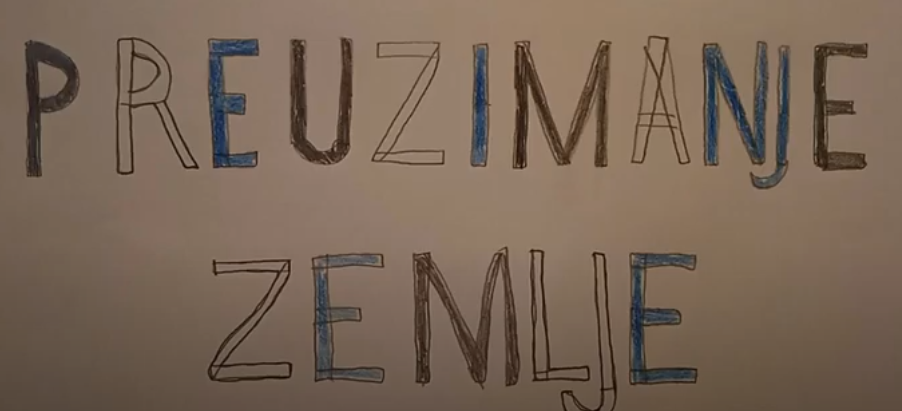 PREUZIMANJE
ZEMLJE